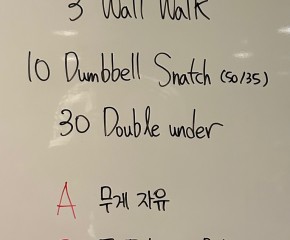 3 Wall Walk
10 Dumbbell Snatch (50/35)
30 Double under
A 무게 자유